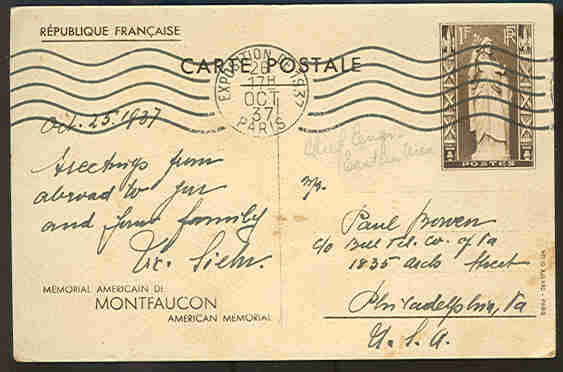 RÉPUBLIQUE FRANÇAISE
CARTE POSTALE
1F RF
POSTES
EXPOSITION 1937
26
17H
OCT
37
PARIS
Oct. 25 1937
Greetings from
abroad to you
and your family
MÉMORIAL AMERICAIN DE
MONTFAUCON
AMERICAN MEMORIAL
Chief Engr.
Eastern Area
Mr.
Paul Bowen
c/o Bell Tel. Co. of Pa
1835 Arch Street
Philadelphia, Pa
U.S.A.